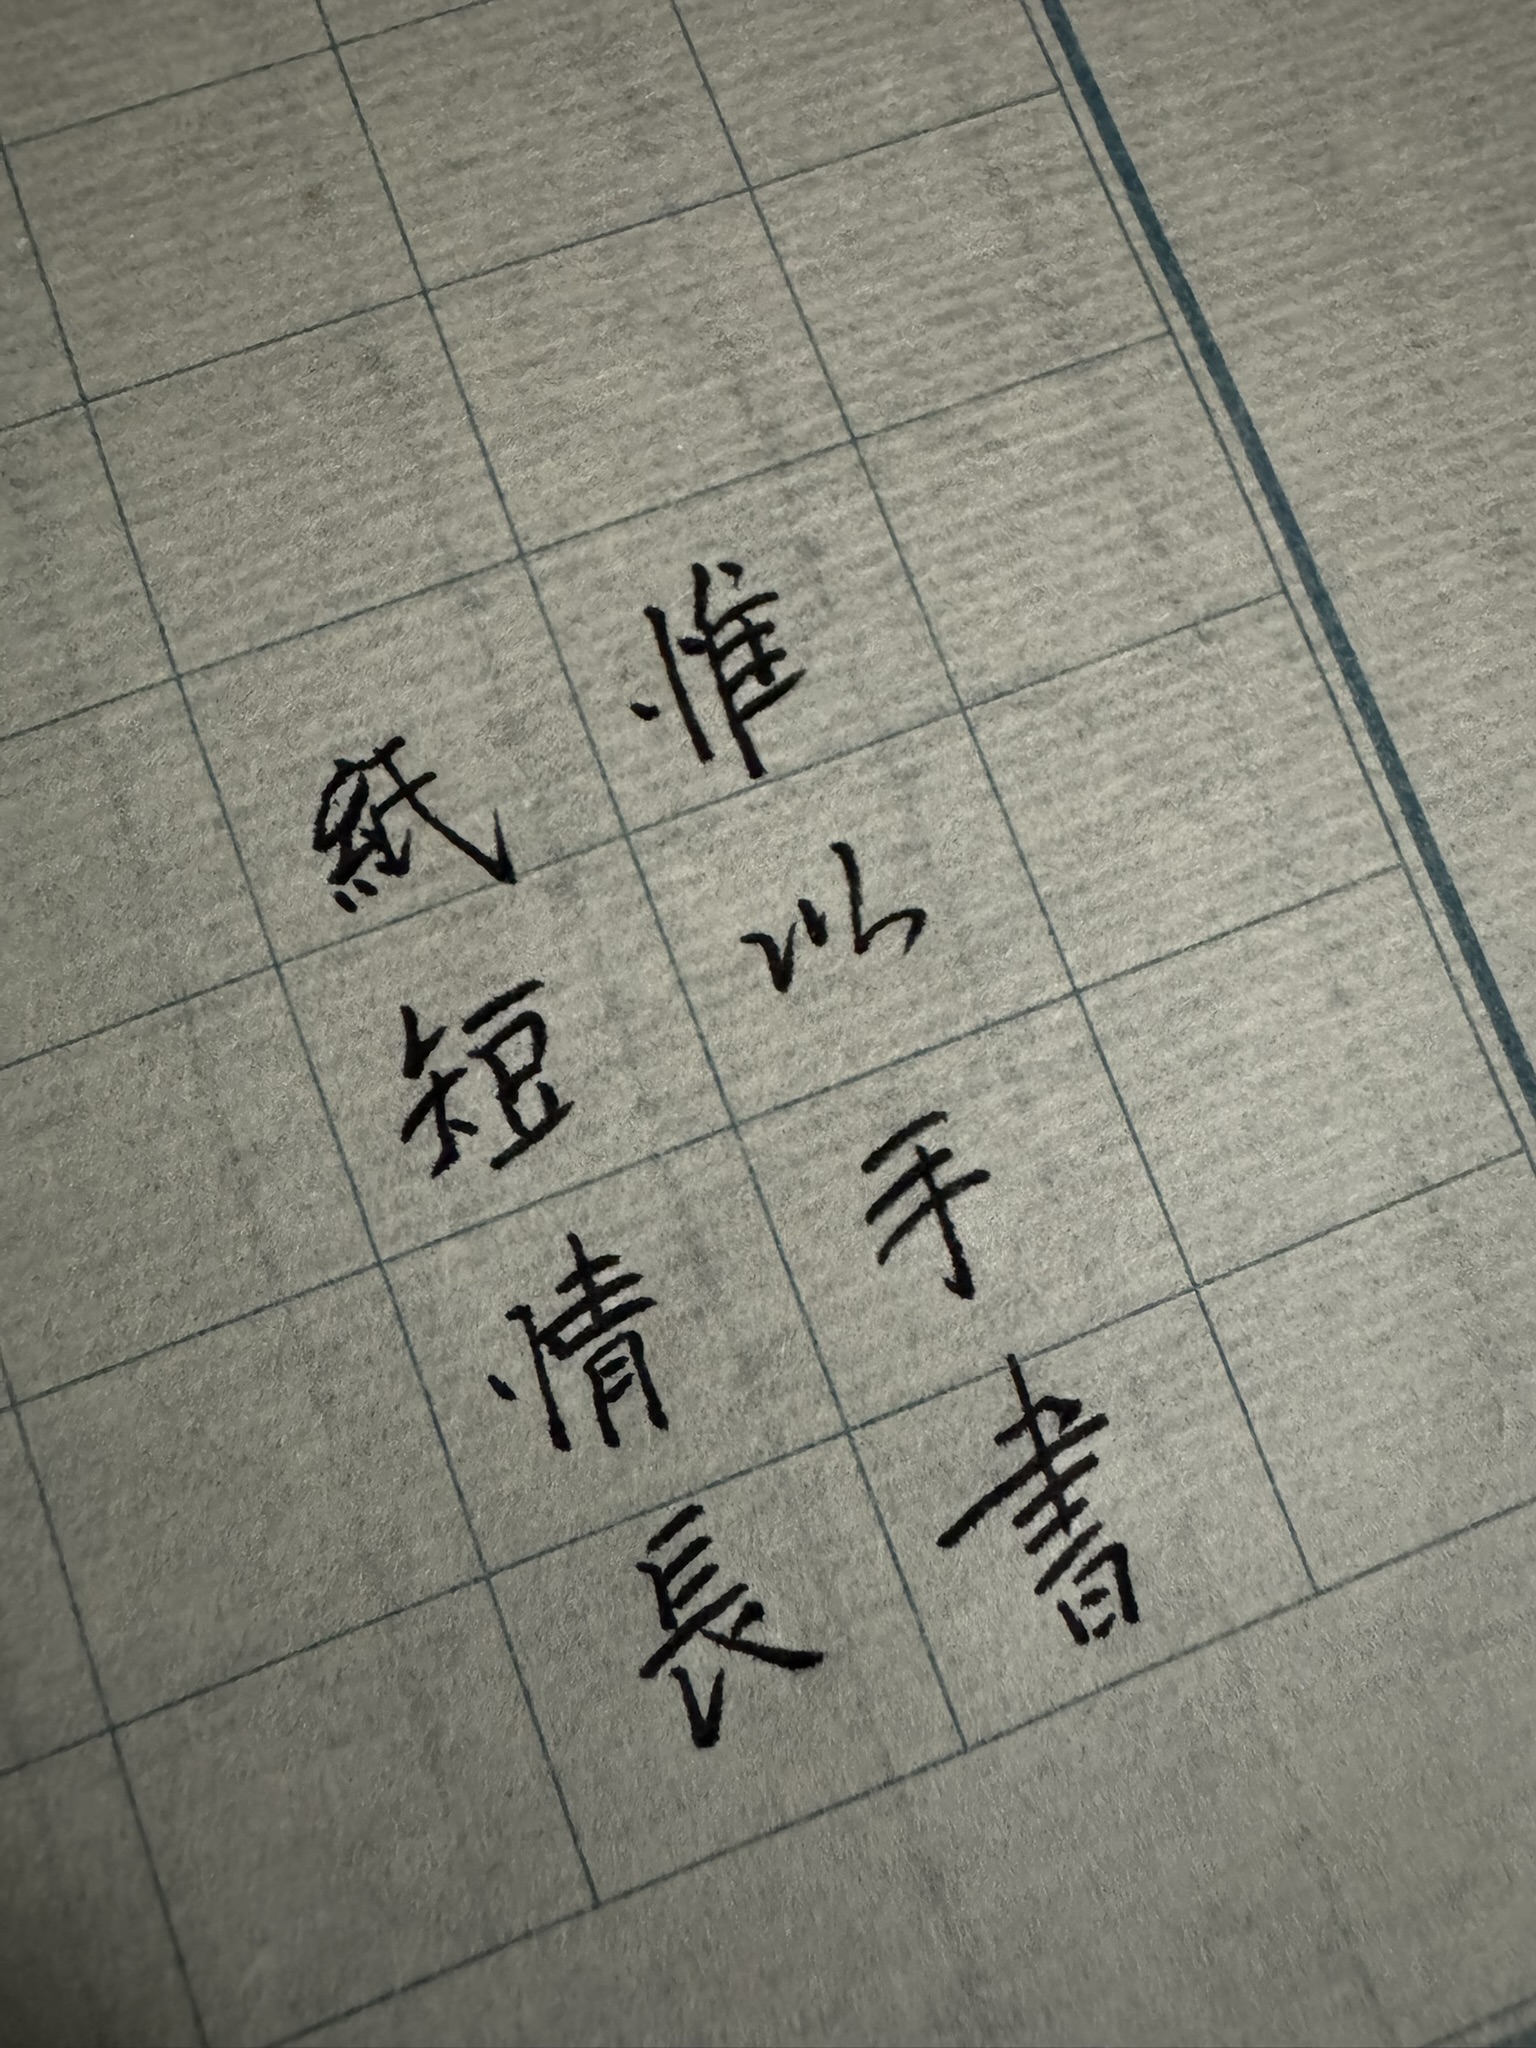 惟以手書
紙短情長